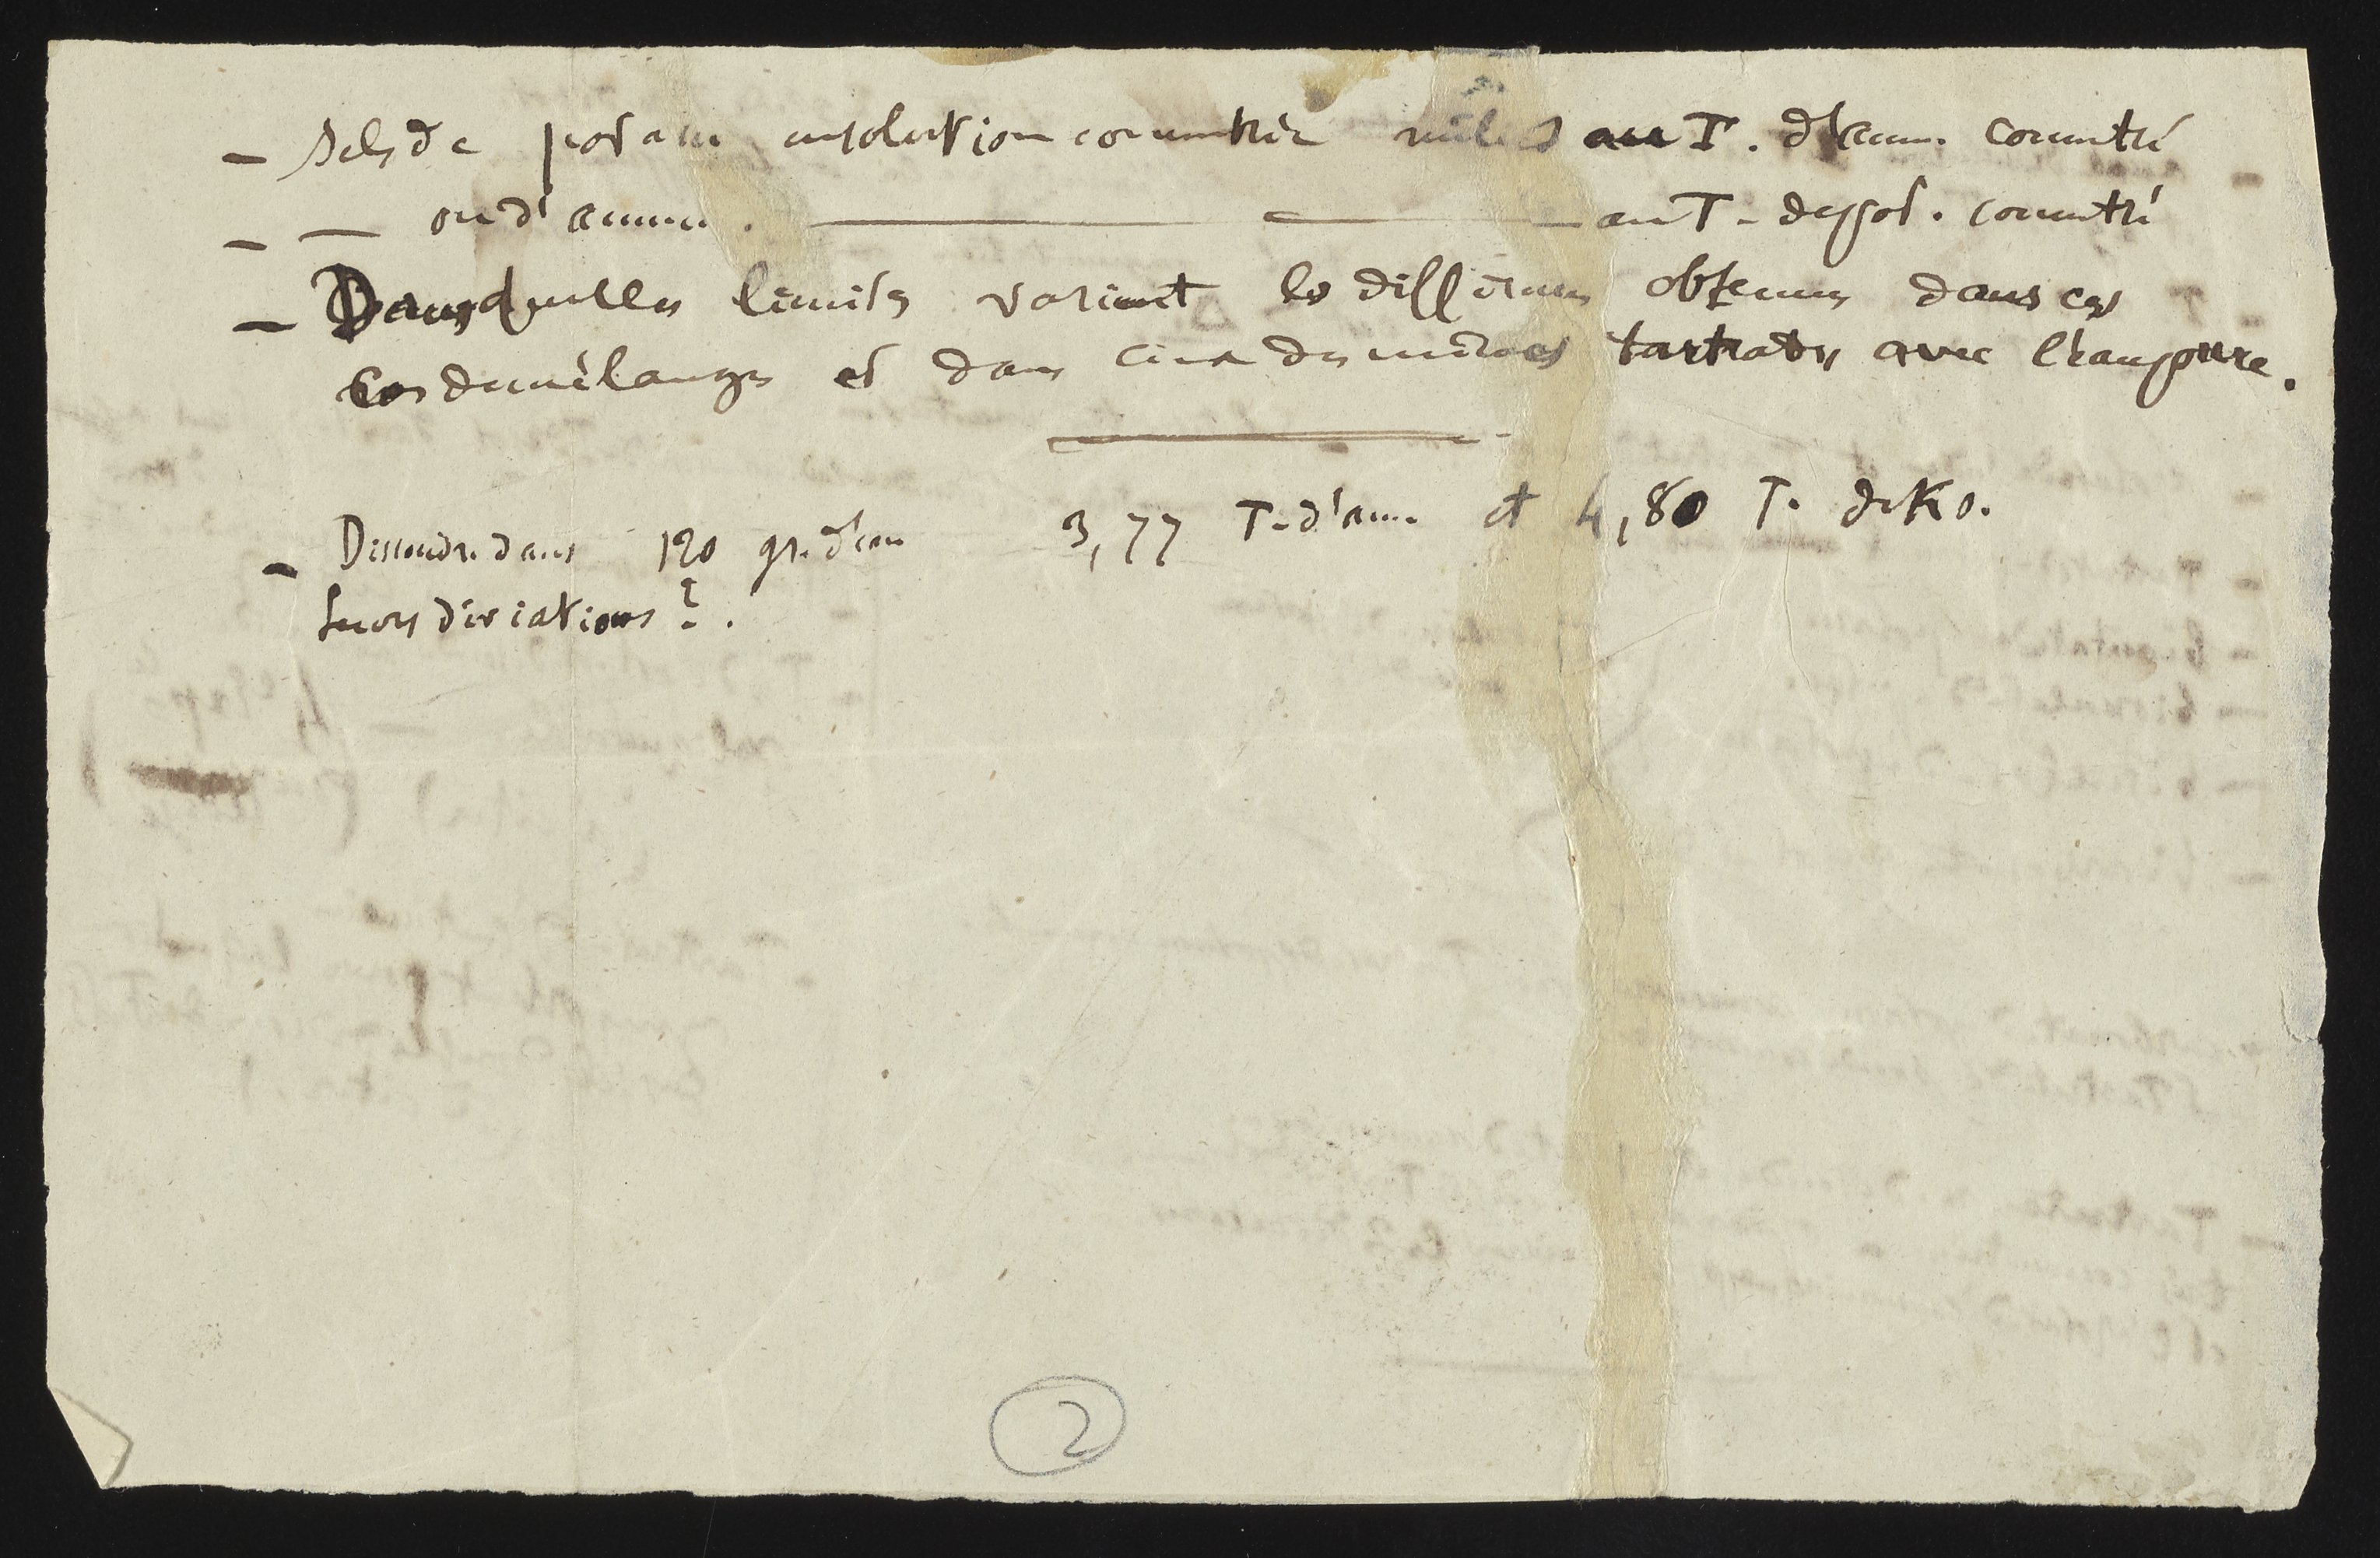 — Sels de potasse en solution concentrée mêlés au T. d'amm. concentré
— — ou d'ammon. — — au T. de pot. concentré
— Dans quelles limites varient les différences obtenues dans ces
cas de mélanges et dans ceux des mêmes tartrates avec l'eau pure.
— Dissoudre dans 120 gr. d'eau 3,77 T. d'am. et 4,80 T. de Ko.
Leurs déviations ? .
2